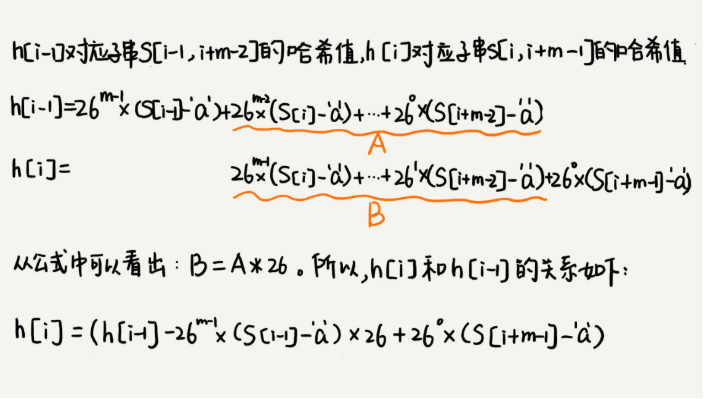 h[i-1]对应子串S[i-1,i+m-2]的哈希值,h[i]对应子串S[i,i+m-1]的哈希值
h[i-1]=26^{m-1}×(S[i-1]-'a')+26^{m-2}×(S[i]-'a')+…+26^0×(S[i+m-2]-'a')
A
h[i]= 26^{m-1}×(S[i]-'a')+…+26^1×(S[i+m-2]-'a')+26^0×(S[i+m-1]-'a')
B
从公式中可以看出:B=A*26。所以,h[i]和h[i-1]的关系如下:
h[i]=(h[i-1]-26^{m-1}×(S[i-1]-'a')×26+26^0×(S[i+m-1]-'a')